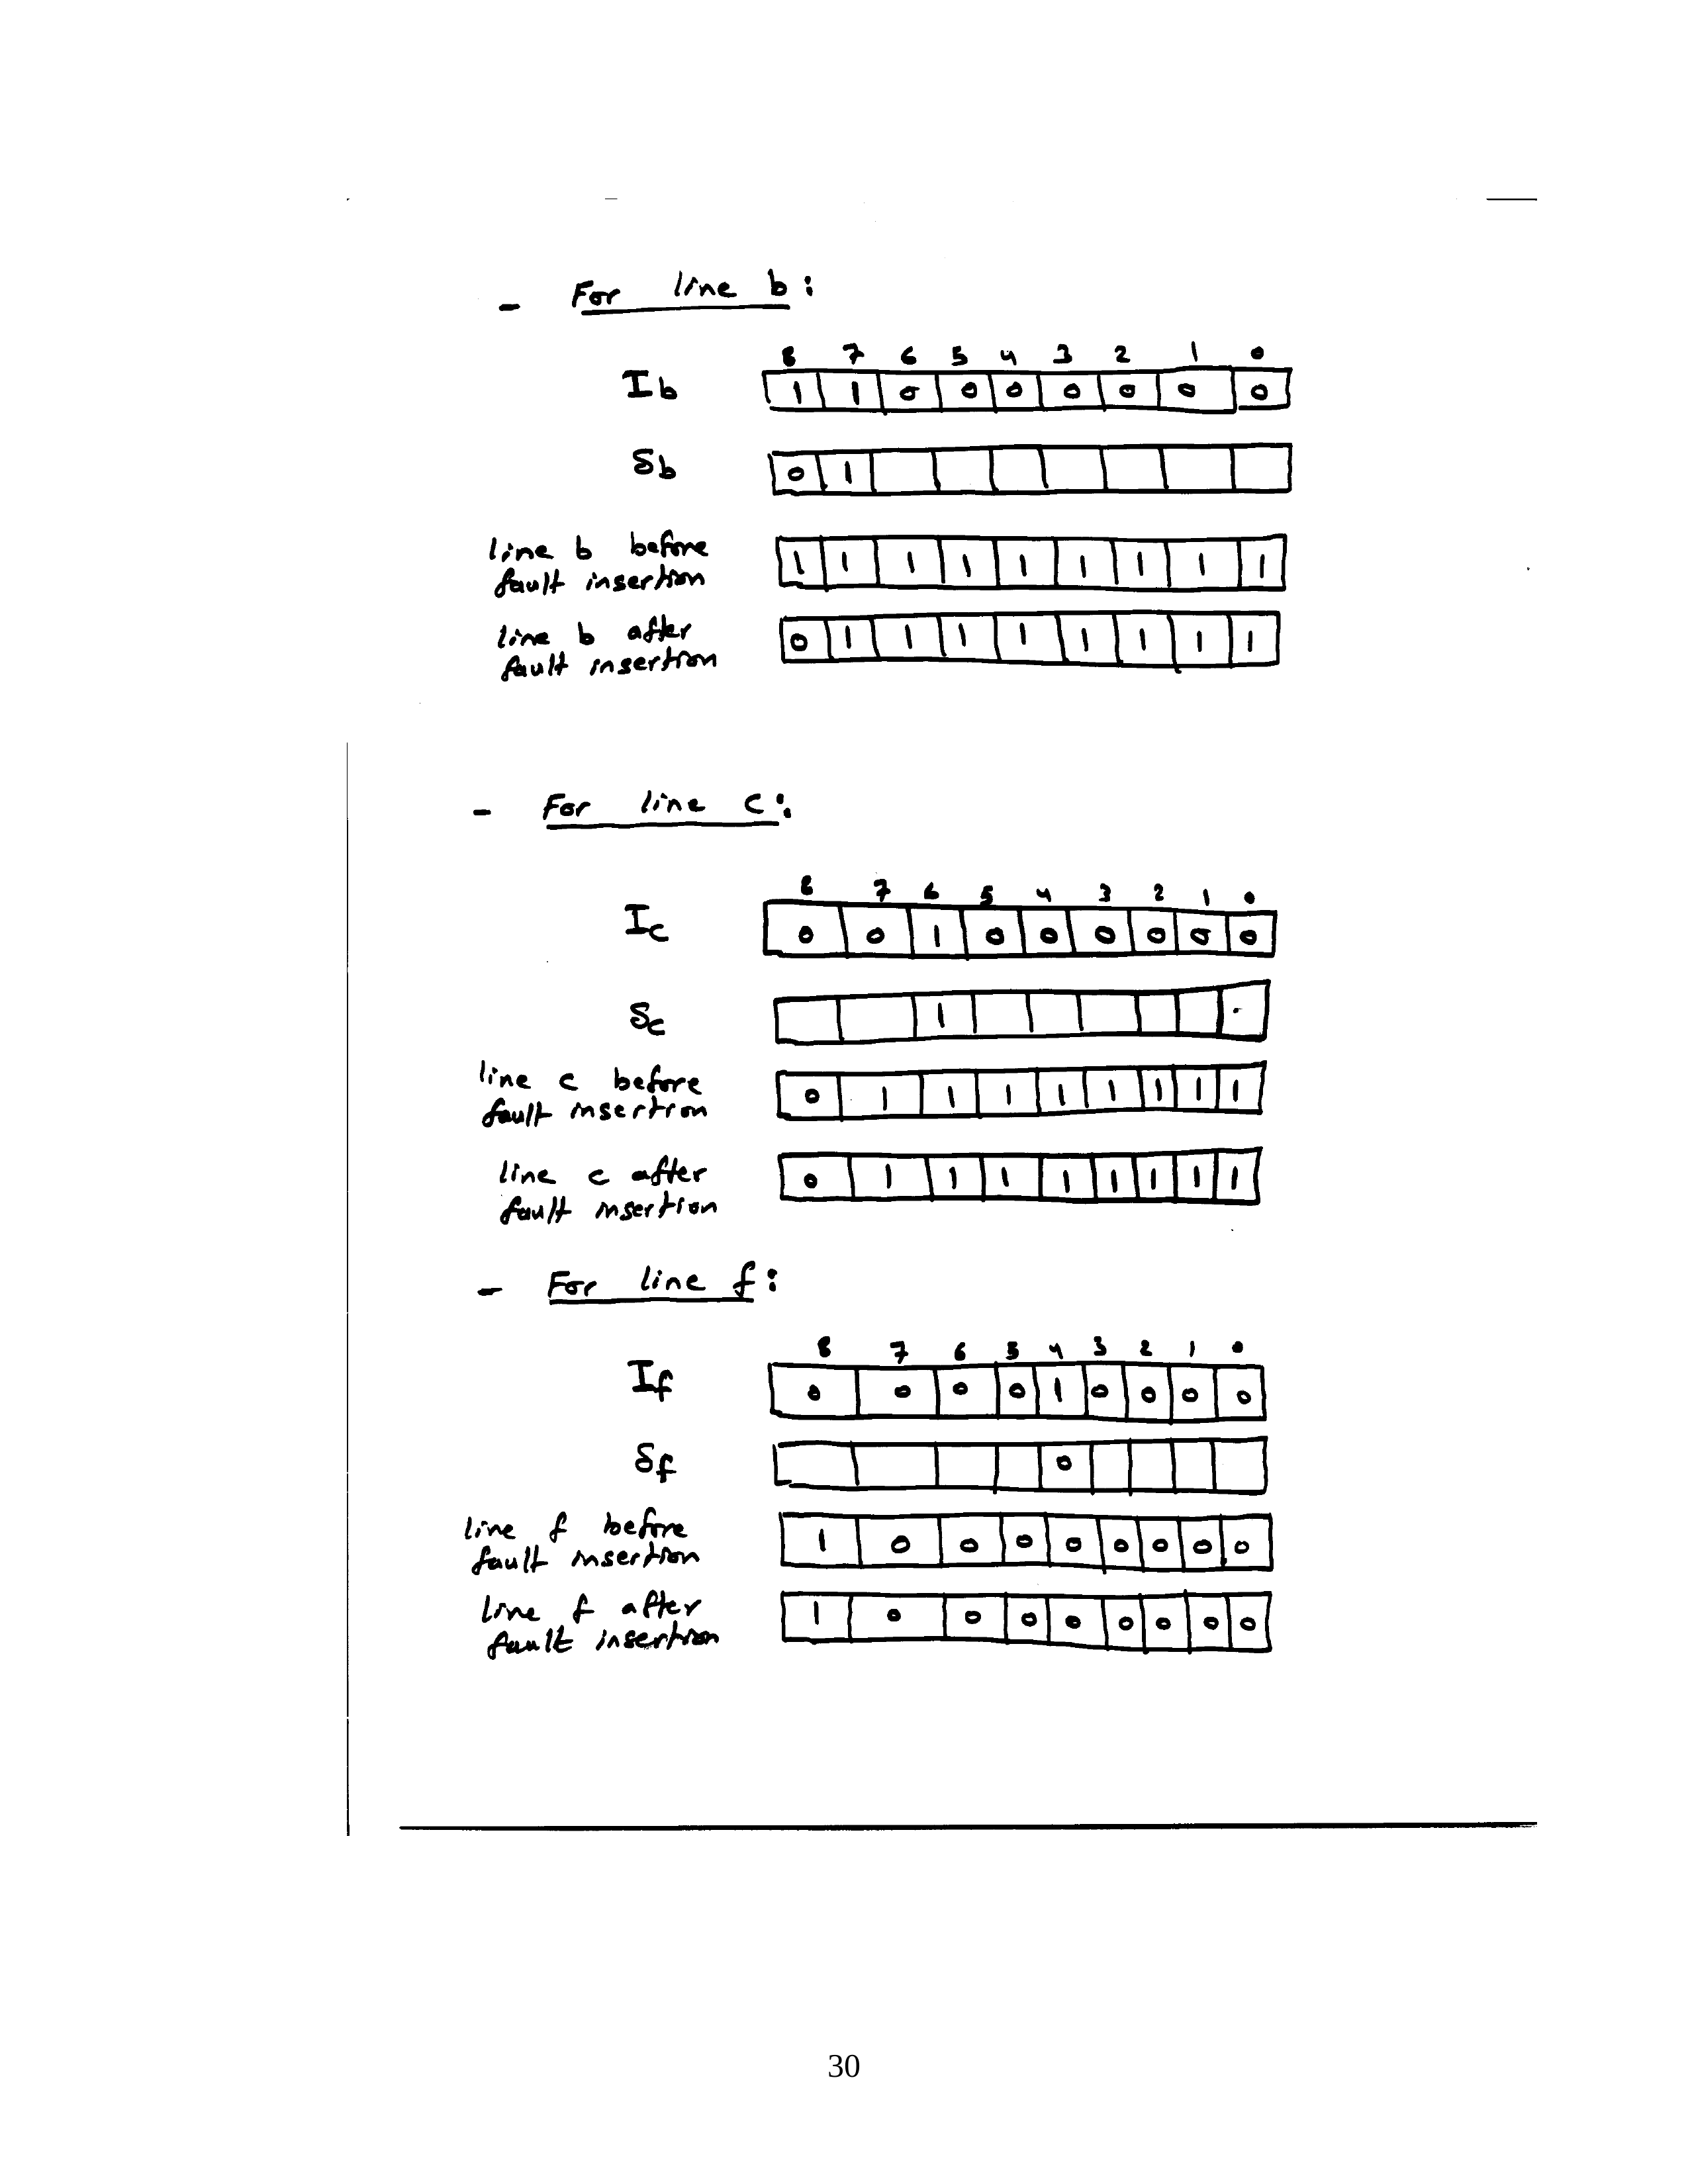 - For line b:
8 7 6 5 4 3 2 1 0
Ib 1 1 0 0 0 0 0 0 0
δb 0 1
line b before
fault insertion
1 1 1 1 1 1 1 1 1
line b after
fault insertion
0 1 1 1 1 1 1 1 1
- For line c:
8 7 6 5 4 3 2 1 0
Ic 0 0 1 0 0 0 0 0 0
δc 1
line c before
fault insertion
0 1 1 1 1 1 1 1 1
line c after
fault insertion
0 1 1 1 1 1 1 1 1
- For line f:
8 7 6 5 4 3 2 1 0
If 0 0 0 0 1 0 0 0 0
δf 0
line f before
fault insertion
1 0 0 0 0 0 0 0 0
line f after
fault insertion
1 0 0 0 0 0 0 0 0
30